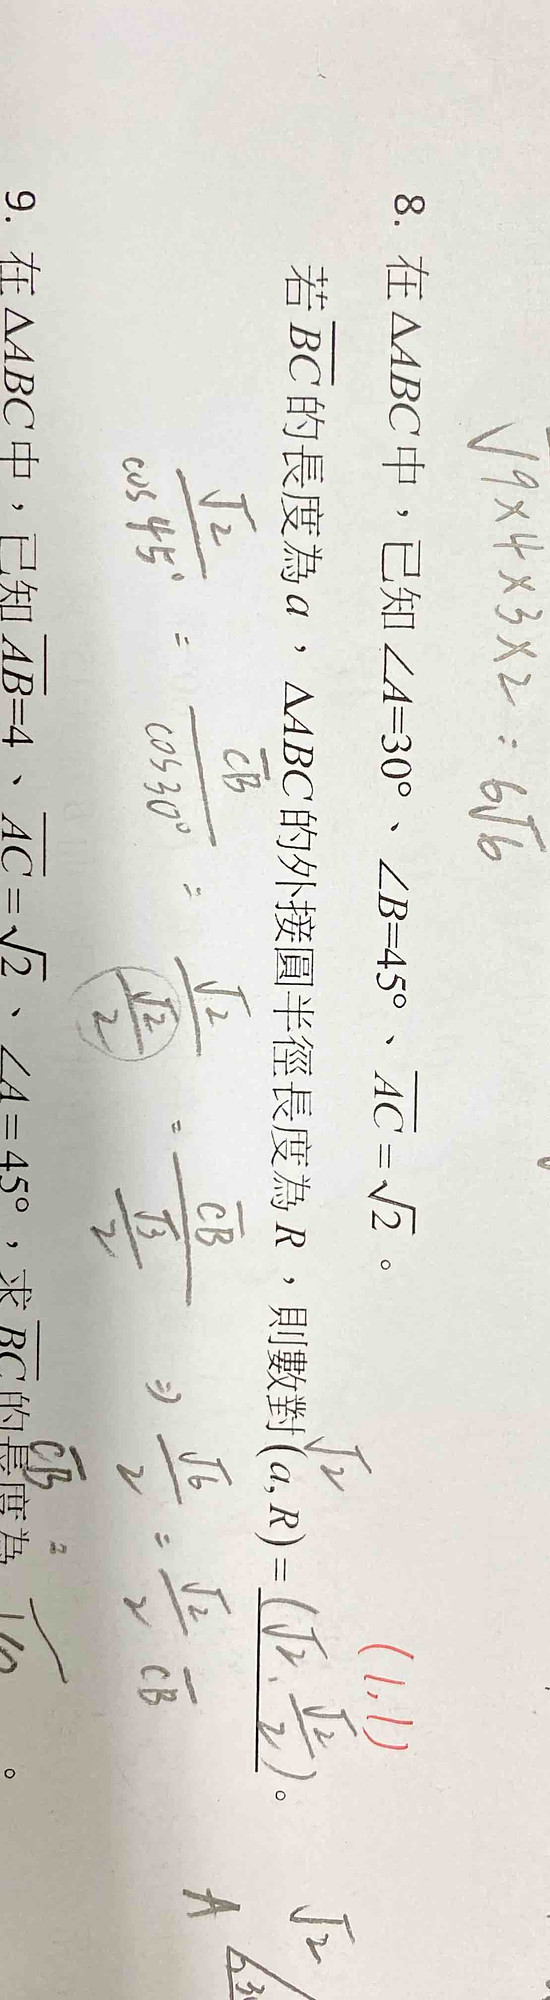 √9×4×3×2 = 6√6
8. 在△ABC中，已知∠A=30°、∠B=45°、AC=√2。
(1,1)
若BC的長度為a，△ABC的外接圓半徑長度為R，則數對(a,R)=(√2, √2/2)。
√2
√2
√2/cos45° = CB/cos30° = √2/(√2/2) = CB/(√3/2) ⇒ √6/2 = √2/2 CB
A
CB =
9. 在△ABC中，已知AB=4、AC=√2、∠A=45°，求BC的長度為 √10 。